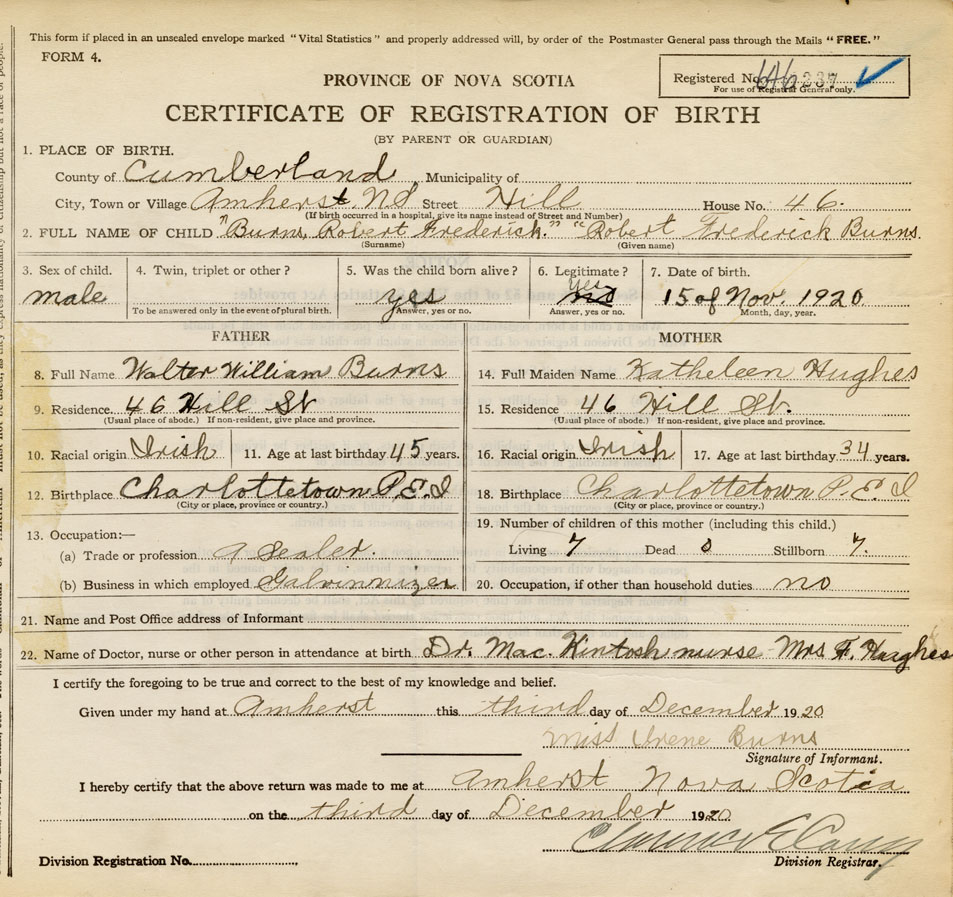 This form if placed in an unsealed envelope marked "Vital Statistics" and properly addressed will, by order of the Postmaster General pass through the Mails "FREE."
FORM 4.
PROVINCE OF NOVA SCOTIA
Registered No. 237
For use of Registrar General only.
CERTIFICATE OF REGISTRATION OF BIRTH
(BY PARENT OR GUARDIAN)
1. PLACE OF BIRTH.
County of Cumberland, Municipality of
City, Town or Village Amherst, NS Street Hill House No. 46.
(If birth occurred in a hospital, give its name instead of Street and Number)
2. FULL NAME OF CHILD "Burns, Robert Frederick." "Robert Frederick Burns.
(Surname) (Given name)
3. Sex of child. 4. Twin, triplet or other? 5. Was the child born alive? 6. Legitimate? 7. Date of birth.
yes
male yes no 15 of Nov. 1920
To be answered only in the event of plural birth. Answer, yes or no. Answer, yes or no. Month, day, year.
FATHER MOTHER
8. Full Name Walter William Burns 14. Full Maiden Name Katheleen Hughes
9. Residence. 46 Hill St 15. Residence 46 Hill St.
(Usual place of abode.) If non-resident, give place and province. (Usual place of abode.) If non-resident, give place and province.
10. Racial origin Irish 11. Age at last birthday 45 years. 16. Racial origin Irish 17. Age at last birthday 34 years.
12. Birthplace Charlottetown P.E.I 18. Birthplace Charlottetown P.E.I
(City or place, province or country.) (City or place, province or country.)
13. Occupation:— 19. Number of children of this mother (including this child.)
(a) Trade or profession A Sealer. Living 7 Dead Stillborn 7.
(b) Business in which employed Galvinnizer 20. Occupation, if other than household duties no
21. Name and Post Office address of Informant
22. Name of Doctor, nurse or other person in attendance at birth Dr. Mac. Kintosh nurse Mrs F. Haaghes
I certify the foregoing to be true and correct to the best of my knowledge and belief.
Given under my hand at Amherst this third day of December 1920
Miss Irene Burns
Signature of Informant.
I hereby certify that the above return was made to me at Amherst Nova Scotia
on the third day of December 1920
Division Registration No. Division Registrar.